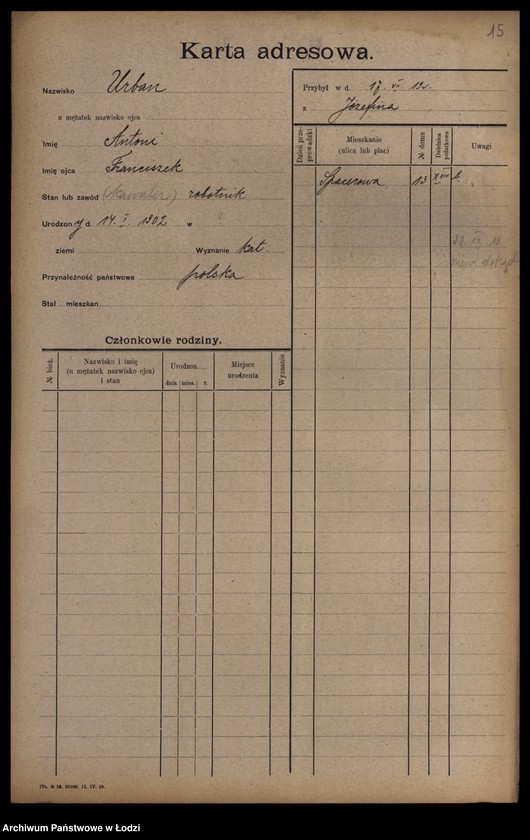 15
Karta adresowa.
Nazwisko Urban
u mężatek nazwisko ojca
Imię Antoni
Imię ojca Franciszek
Stan lub zawód (kawaler) robotnik
Urodzony d. 14. I. 1902 w
ziemi Wyznanie kat.
Przynależność państwowa polska
Stał mieszkan
Przybył w d. 17. VI
z Józefina
Dzień przeprowadzki
Mieszkanie (ulica lub plac)
№ domu
Dzielnica podatkowa
Uwagi
Spacerowa 13
Członkowie rodziny.
№ bież.
Nazwisko i imię (u mężatek nazwisko ojca) i stan
Urodzon
dnia mies. r.
Miejsce urodzenia
Wyznanie
Archiwum Państwowe w Łodzi